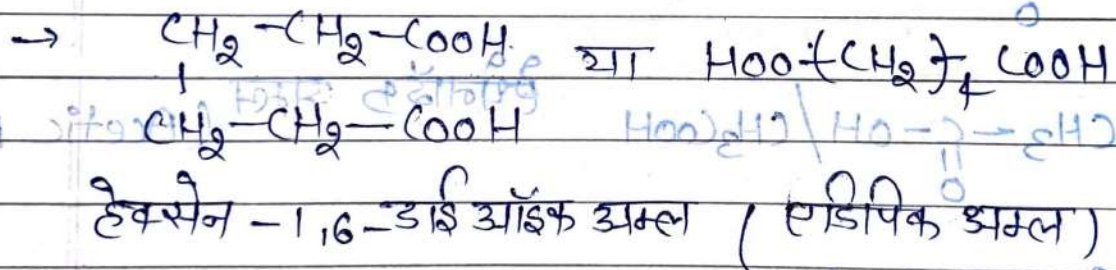 → CH₂-CH₂-COOH या HOO-(CH₂)₄ COOH
|
CH₂-CH₂-COOH
हेक्सेन-1,6-डाई ऑइक अम्ल (एडिपिक अम्ल)